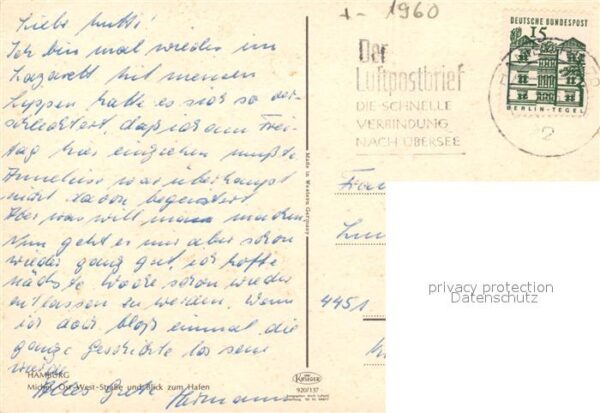 Liebe Mutti!
Ich bin mal wieder im
Lazarett. Mit meinen
Lippen hatte es sich so ver-
schlechtert, daß ich am Frei-
tag hier einziehen mußte.
Anneliese war überhaupt
nicht davon begeistert.
Aber was will man machen.
Nun geht es mir aber schon
wieder ganz gut, ich hoffe
nächste Woche schon wieder
entlassen zu werden. Wenn
ich doch bloß einmal die
ganze Geschichte los sein
würde.
Alles Gute Hermann
HAMBURG
Ost-West-Straße und Blick zum Hafen
+- 1960
Der
Luftpostbrief
DIE SCHNELLE
VERBINDUNG
NACH ÜBERSEE
DEUTSCHE BUNDESPOST
15
BERLIN-TEGEL
2
Made in Western Germany
Krüger
920/137
Frau
4451
privacy protection
Datenschutz